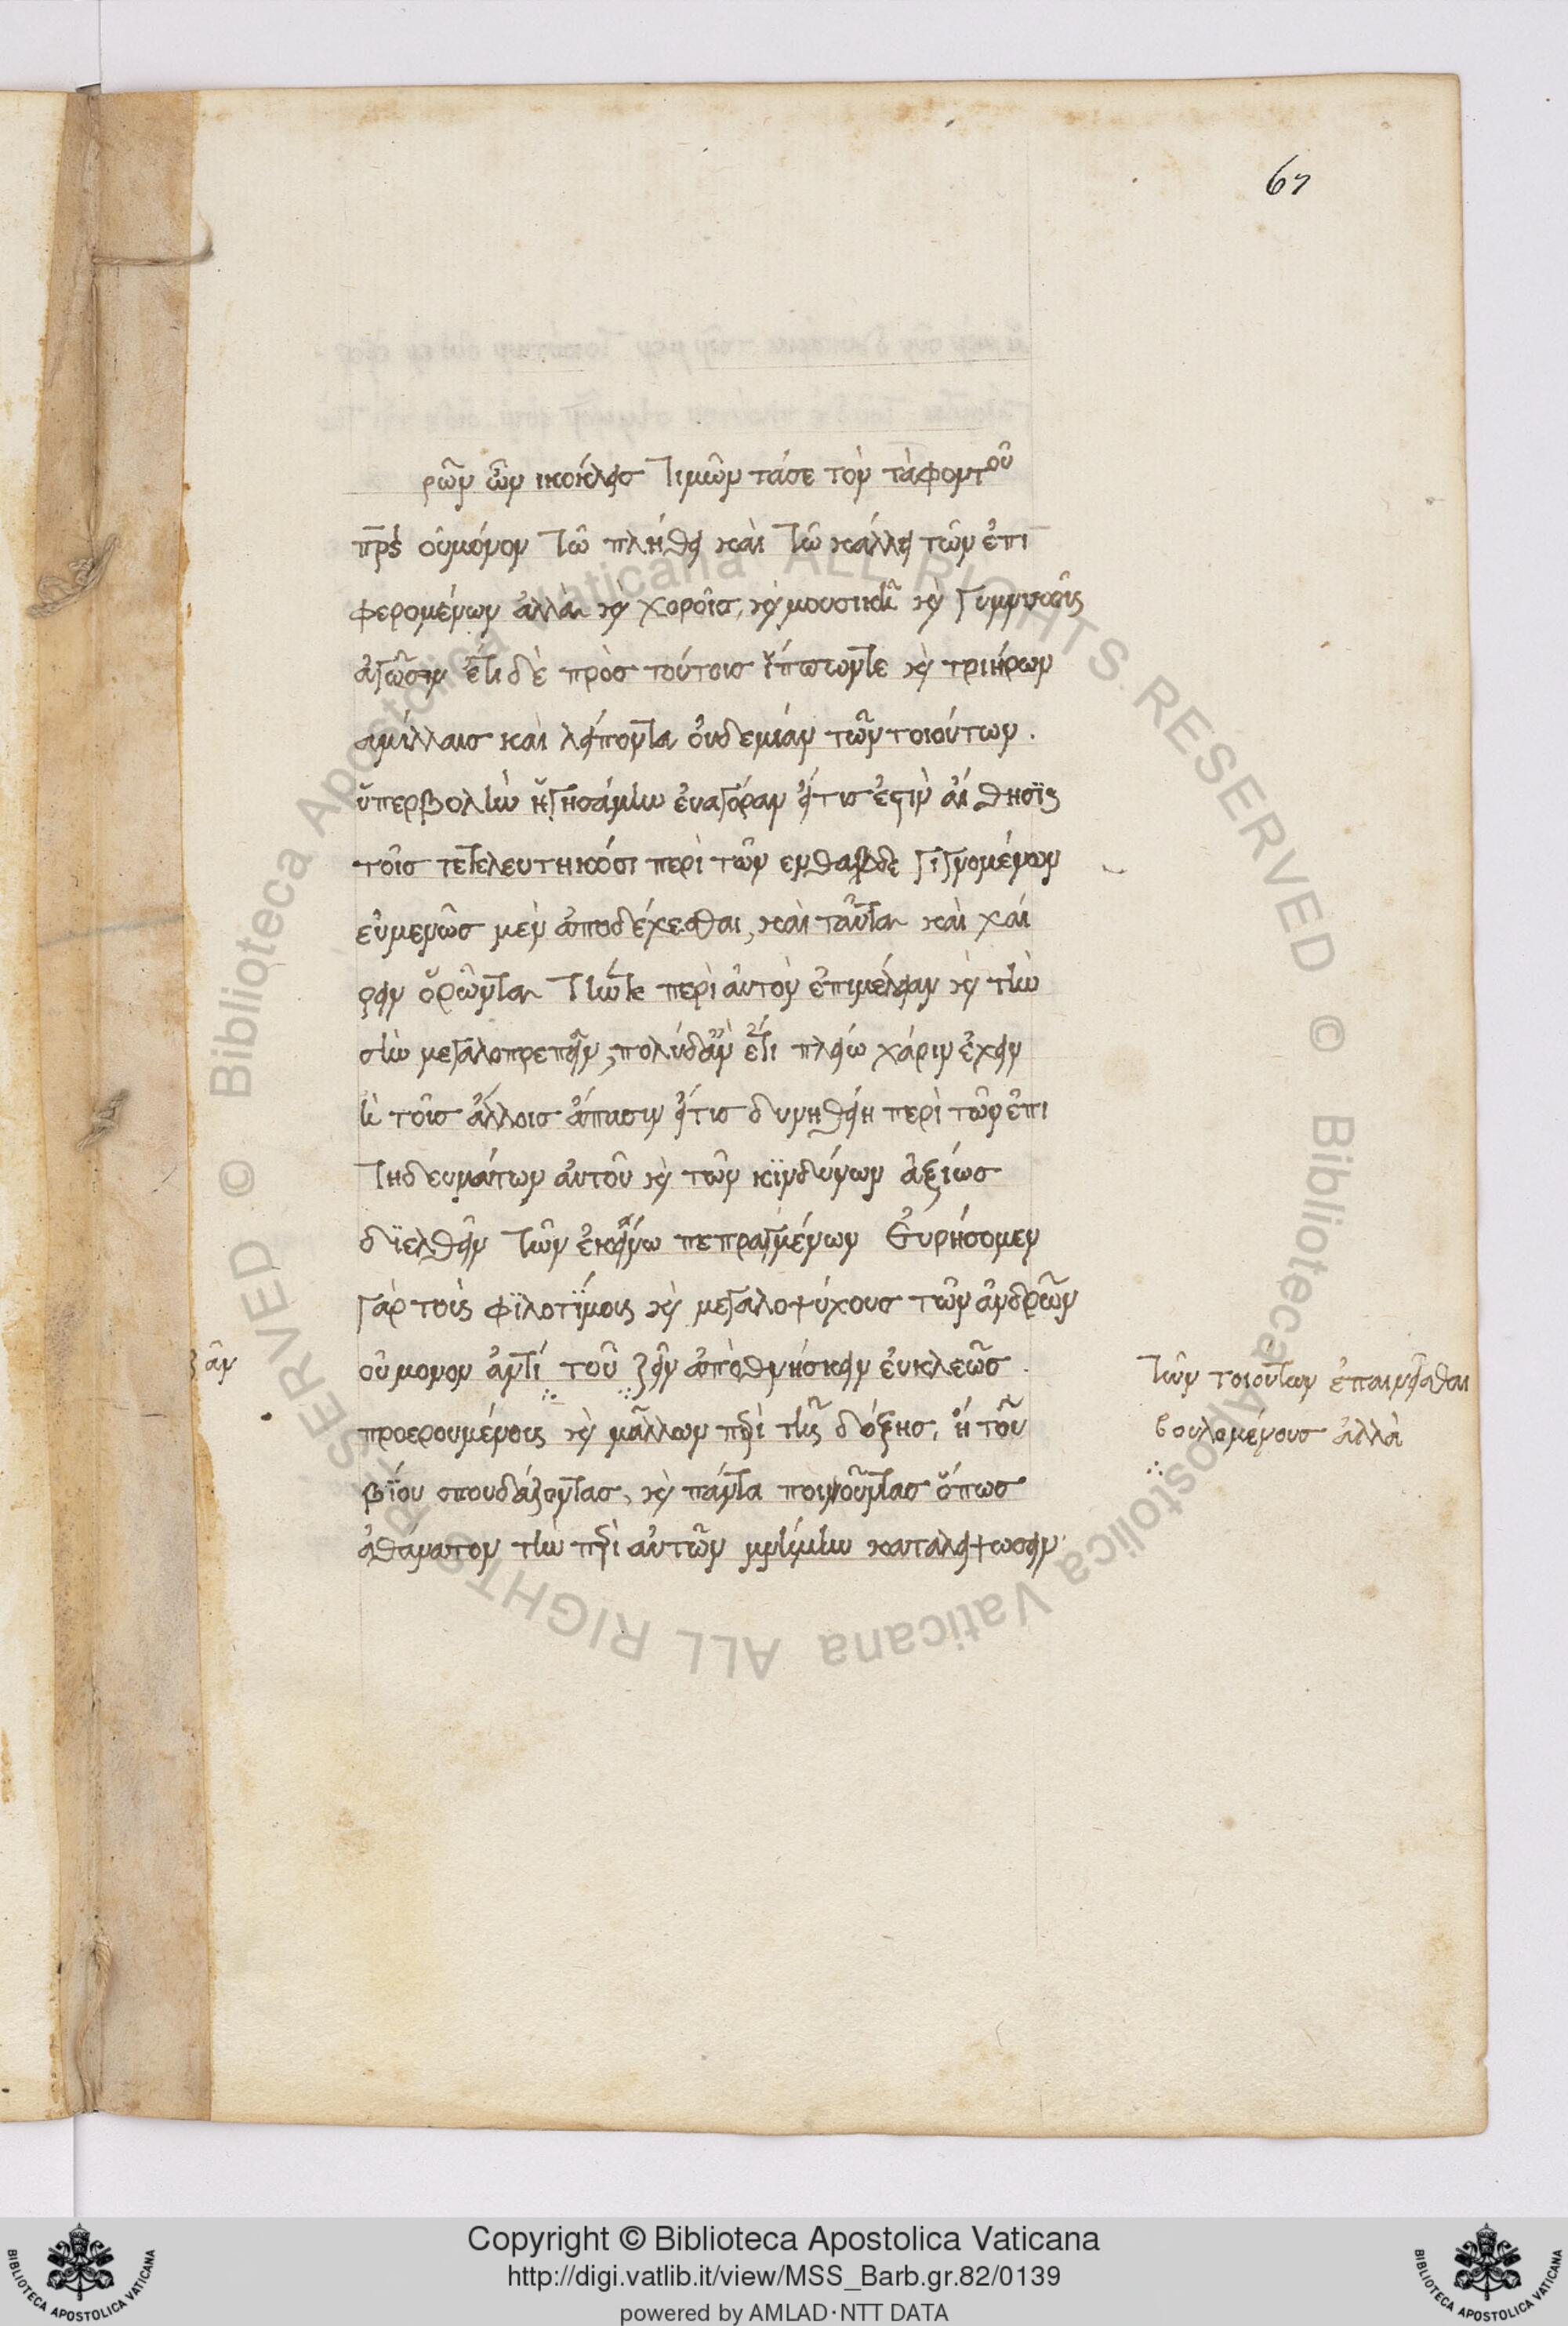 67
ρῶν ὦν ικοκλης τιμῶν τάσε τὸν τὰφοντοῦ
πρς οὐμόνον τῶ πλήθει καὶ τῶ κάλλει τῶν ἐπι
φερομένων ἀλλὰ κὴ χοροῖσ, κὴ μουσικῆ κὴ γυμνικοῖς
ἀγῶσιν ἔτι δὲ πρὸσ τούτοισ ἵππωντε κὴ τριήρων
αμίλλαισ καὶ λείποντα οὐδεμίαν τῶν τοιούτων.
ὑπερβολὴν ἡγησάμην ἐυαγόραν εἴτισ ἐςιν αἴ θησϊς
τοῖσ τετελευτηκόσι περὶ τῶν ενθαδε γιγνομένων
εὐμενῶσ μεν ἀποδέχεσθαι, καὶ ταῦτα καὶ χαί
ρειν ὁρῶντα τήντε περὶ αὐτὸν ἐπιμέλειαν κὴ τὴν
στὴν μεγαλοπρεπεῖαν, πολὺδὰν ἔτι πλείω χάριν ἔχειν
ἢ τοῖσ ἄλλοισ ἅπασιν εἴτισ δυνηθείη περὶ τῶν ἐπι
τηδευμάτων αὐτοῦ κὴ τῶν κϊνδύνων ἀξίωσ
διελθεῖν τῶν ἐκείνω πεπραγμένων Ἐυρήσομεν
γὰρ τοὺς φϊλοτΐμους κὴ μεγαλοψύχουσ τῶν ἀνδρῶν
οὐ μονον ἀντί τοῦ ζῆν ἀποθνήσκειν ἐυκλεῶσ
προερουμένους κὴ μᾶλλων περὶ τῆς δόξησ, ἢ τοῦ
βΐου σπουδάζοντασ, κὴ πάντα ποιοῦντασ ὅπωσ
ἀθάνατον τὴν περὶ αὐτῶν μνήμην καταλείψωσιν
αν
τῶν τοιούτων ἐπαινεῖσθαι
βουλομένουσ ἀλλὰ
Copyright © Biblioteca Apostolica Vaticana
http://digi.vatlib.it/view/MSS_Barb.gr.82/0139
powered by AMLAD·NTT DATA
BIBLIOTECA APOSTOLICA VATICANA
BIBLIOTECA APOSTOLICA VATICANA
© Biblioteca Apostolica Vaticana ALL RIGHTS RESERVED © Biblioteca Apostolica Vaticana ALL RIGHTS RESERVED